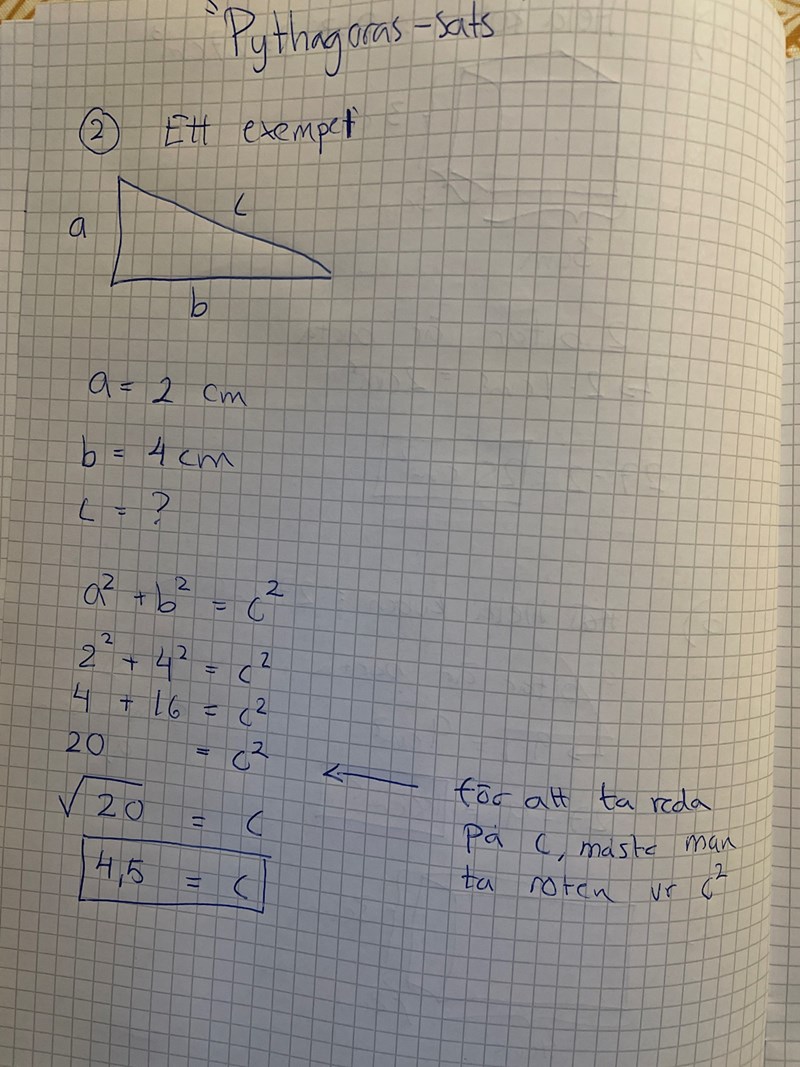 Pythagoras-sats
② Ett exempel
a
c
b
a = 2 cm
b = 4 cm
c = ?
a² + b² = c²
2² + 4² = c²
4 + 16 = c²
20 = c²
√20 = c
4,5 = c
← för att ta reda
på c, måste man
ta roten ur c²